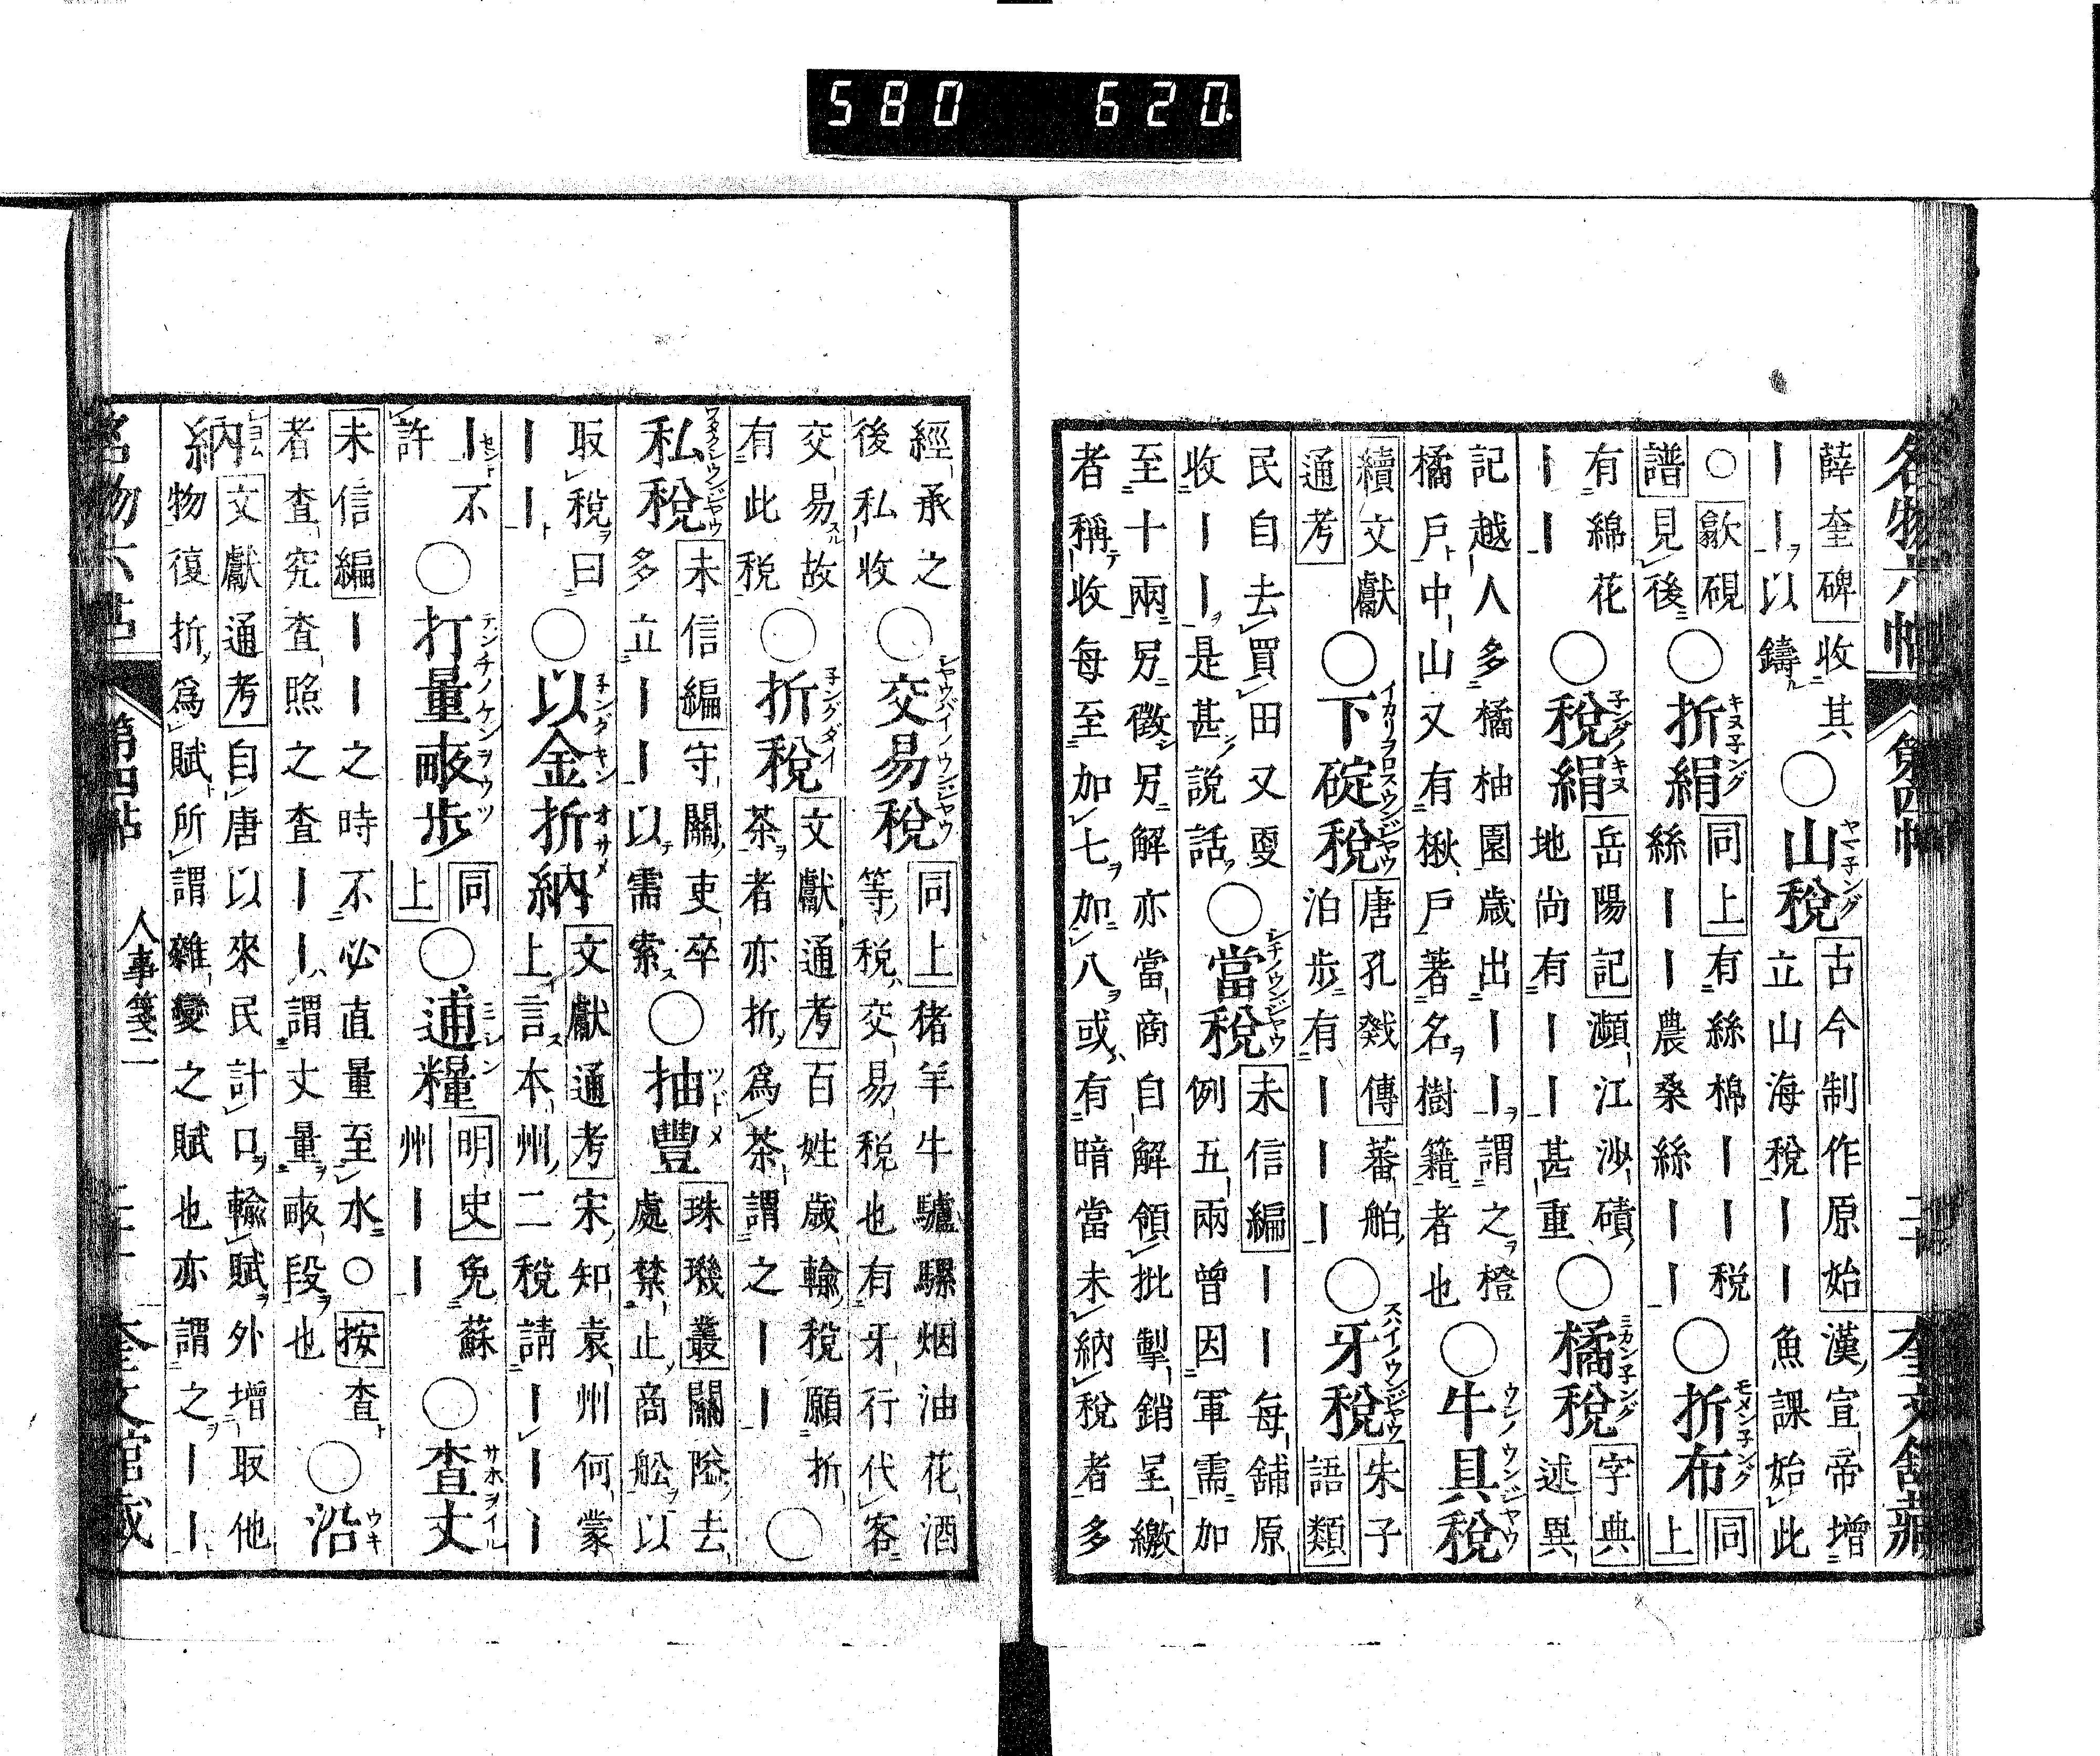 名物六帖 第四帖 奎文館藏
薛奎碑收其
ーー以鑄
○山稅
古今制作原始漢宣帝增
立山海稅ーー魚課始此
○歙硯
譜見後
○折絹
同上有絲棉ーーー稅
絲ーー農桑絲ーー
○折布
同上
有綿花
ーー
○稅絹
岳陽記瀕江沙磧
地尚有ーー甚重
○橘稅
字典
述異
記越人多橘柚園歲出ーー謂之橙
橘戶中山又有楸戶著名樹籍者也
○牛具稅
續文獻
通考
○下碇稅
唐孔戣傳蕃舶
泊步有ーーー
○牙稅
朱子
語類
民自去買田又要
收ーー是甚說話
○當稅
未信編ーー每舖原
例五兩曾因軍需加
至十兩另徵另解亦當商自解領批掣銷呈繳
者稱收每至加七加八或有暗當未納稅者多
經承之
後私收
○交易稅
同上猪羊牛驢騾烟油花酒
等稅交易稅也有牙行代客
交易故
有此稅
○折稅
文獻通考百姓歲輸稅願折
茶者亦折爲茶謂之ーー
○
私稅
未信編守關吏卒
多立ーー以需索
○抽豐
珠璣叢關隘去
處禁止商舩以
取稅曰
ーー
○以金折納
文獻通考宋知袁州何蒙
上言本州二稅請ーーー
ー不
許
○打量畝步
同上
○逋糧
明史免蘇
州ーー
○查丈
未信編ーー之時不必直量至水○按查
者查究查照之查ーー謂丈量畝段也
○沿
納
文獻通考自唐以來民計口輸賦外增取他
物復折爲賦所謂雜變之賦也亦謂之ーー
名物六帖 第四帖 人事箋二 奎文館藏
580 620